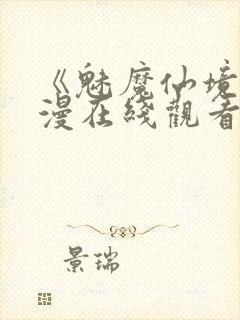 《魅魔仙境
漫在綫觀看
景瑞